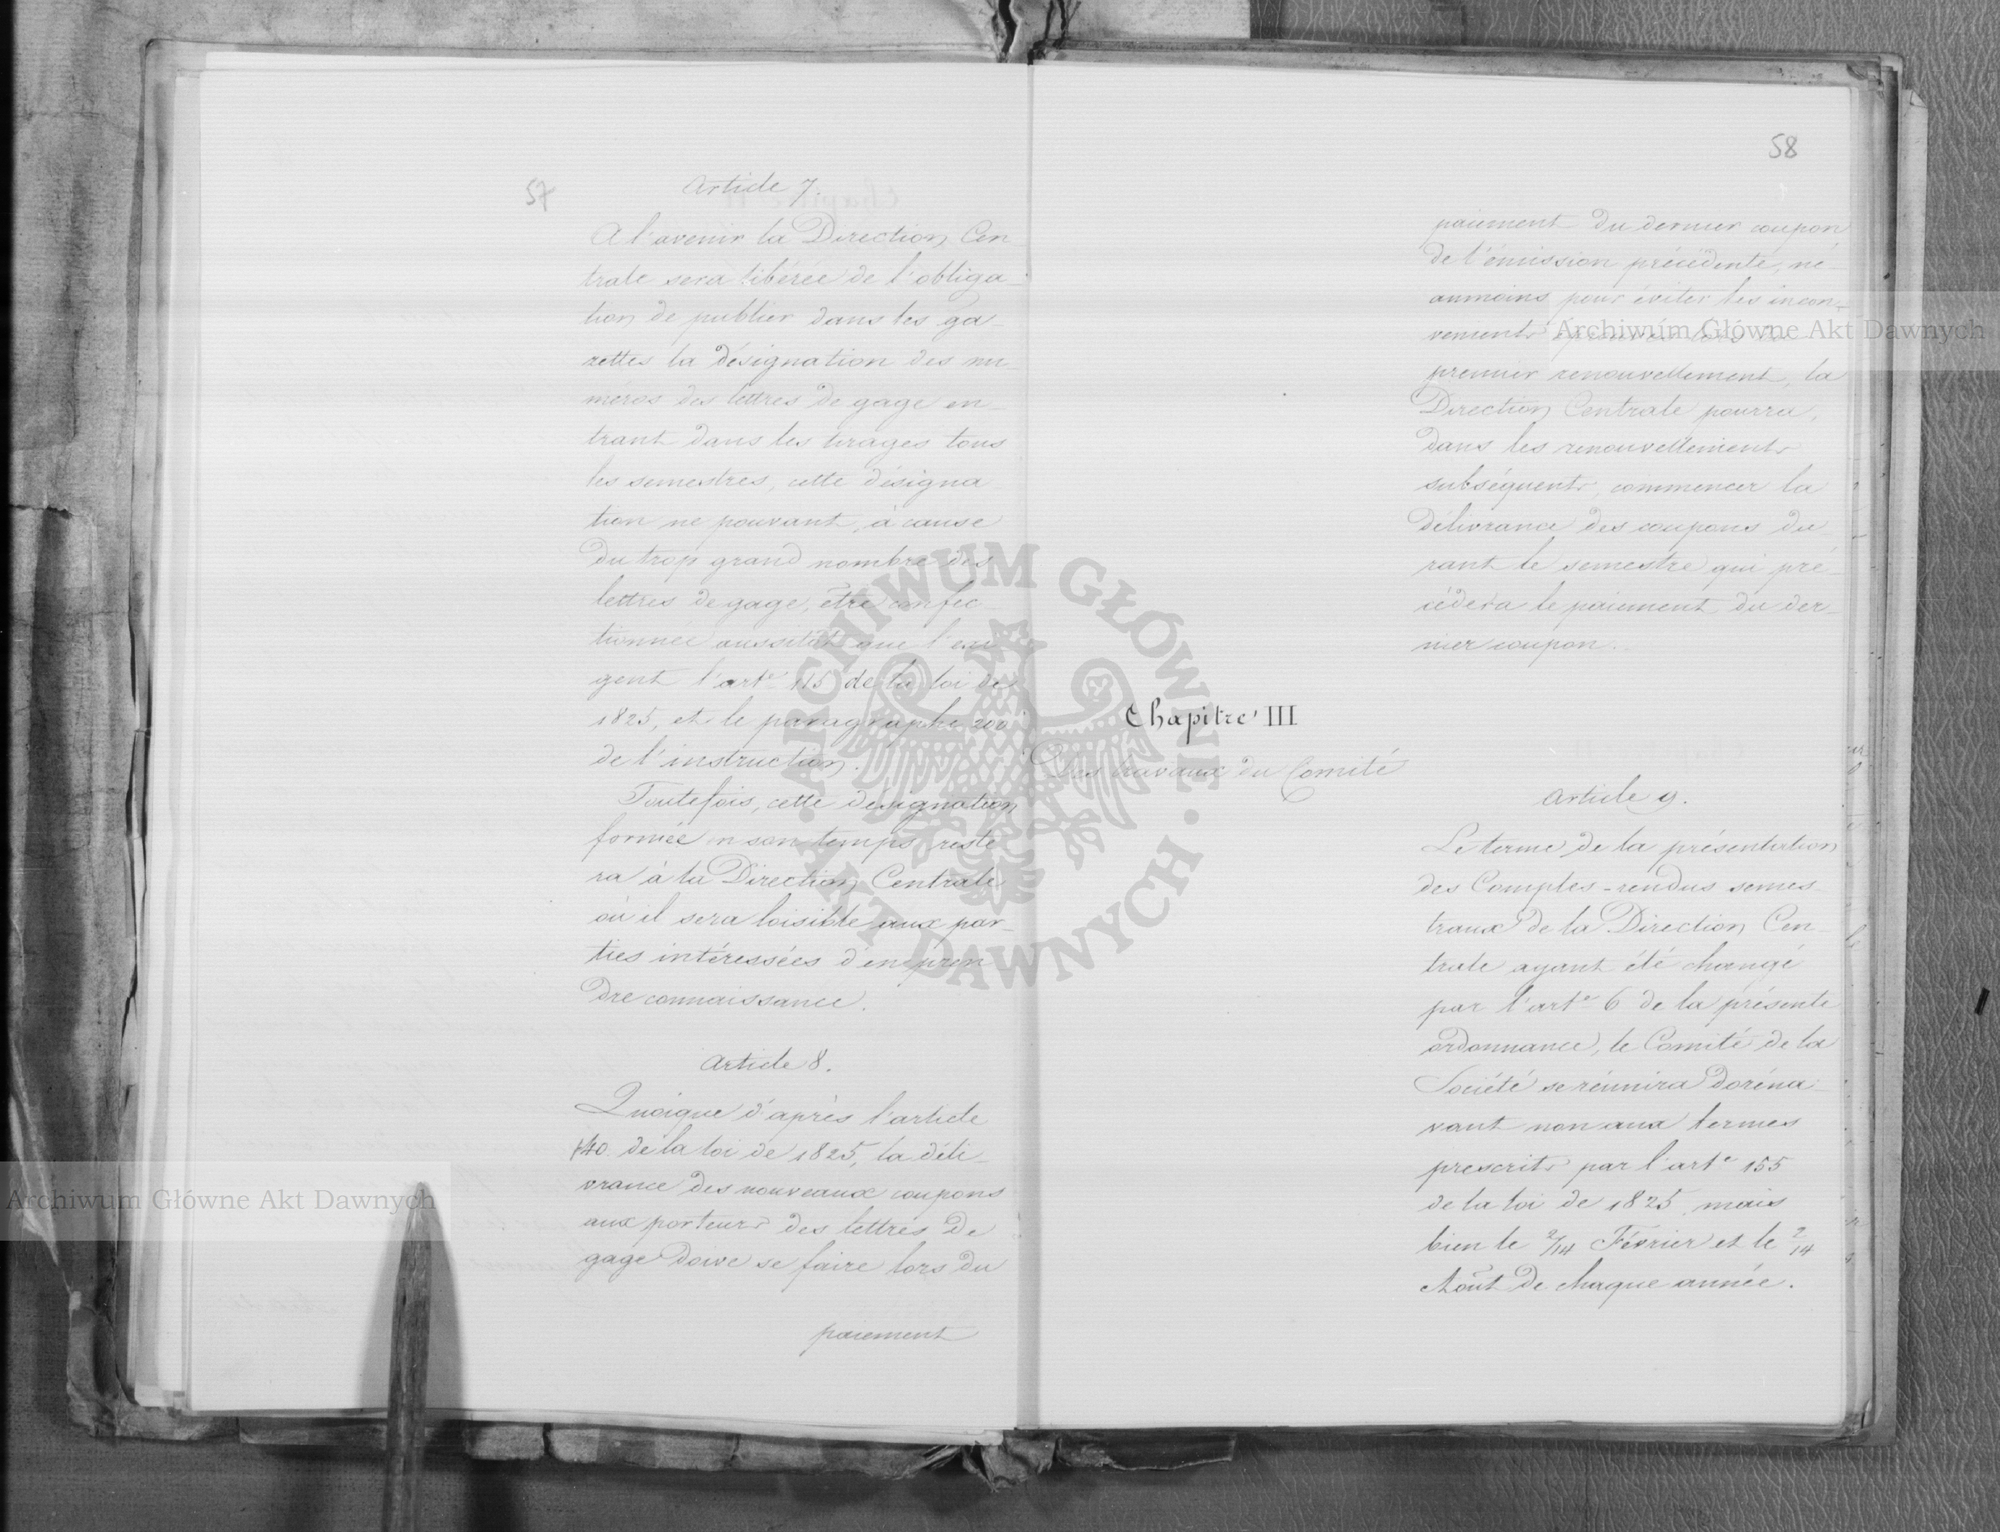 57
Article 7.
A l'avenir la Direction Cen-
trale sera libérée de l'obliga-
tion de publier dans les ga-
zettes la désignation des nu-
méros des lettres de gage en-
trant dans les tirages tous
les semestres, cette désigna
tion ne pouvant, à cause
du trop grand nombre des
lettres de gage, être confec
tionnée aussitôt que l'exi
gent l'arte 115 de la loi de
1825, et le paragraphe 200
de l'instruction.
Toutefois, cette désignation
formée en son temps, reste
ra à la Direction Centrale
où il sera loisible aux par-
ties intéressées d'en pren
dre connaissance.
Article 8.
Quoique d'après l'article
140 de la loi de 1825, la déli-
vrance des nouveaux coupons
aux porteurs des lettres de
gage doive se faire lors du
paiement
58
paiement du dernier coupon
de l'émission précédente, né-
anmoins pour éviter les incon-
vements éprouvés lors du
premier renouvellement, la
Direction Centrale pourra,
dans les renouvellements
subséquents, commencer la
délivrance des coupons du
rant le semestre qui pré-
cédera le paiement du der-
nier coupon.
Chapitre III
Des travaux du Comité
Article 9.
Le terme de la présentation
des Comptes-rendus semes-
traux de la Direction Cen-
trale ayant été changé
par l'arte 6 de la présente
ordonnance, le Comité de la
Société se réunira doréna-
vant non aux termes
prescrits par l'arte 155
de la loi de 1825, mais
bien le 2/14 Février et le 2/14
Août de chaque année.
Archiwum Główne Akt Dawnych
Archiwum Główne Akt Dawnych
ARCHIWUM GŁÓWNE AKT DAWNYCH